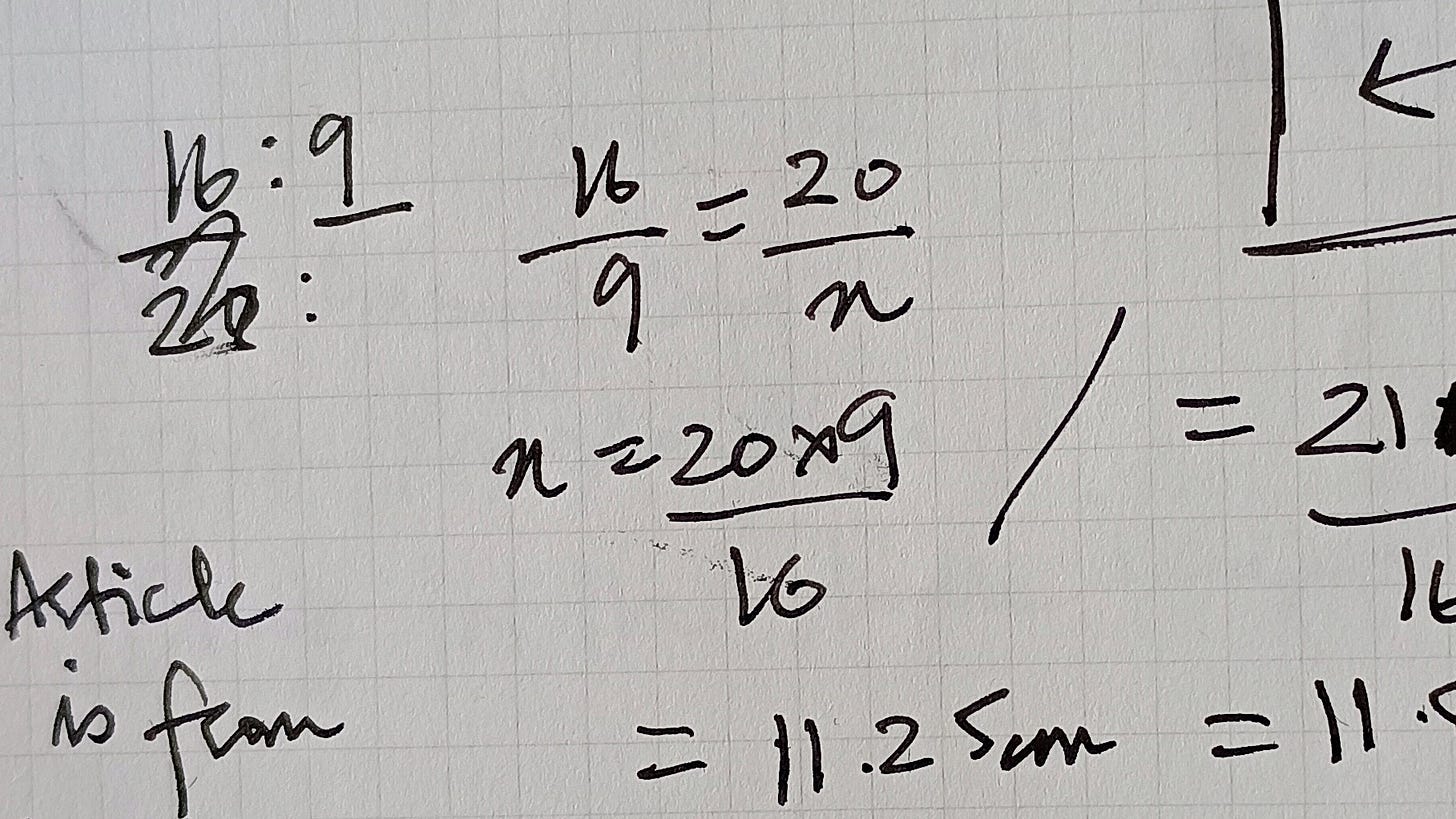 16 : 9
20 :
16/9 = 20/n
n = 20×9/16
= 11.25cm
= 21
16
= 11.
Article
is from